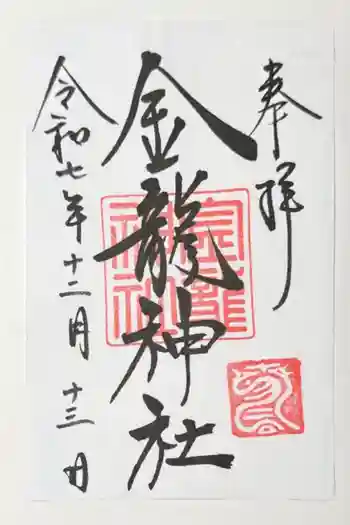 奉拝
金龍神社
令和七年十二月十三日